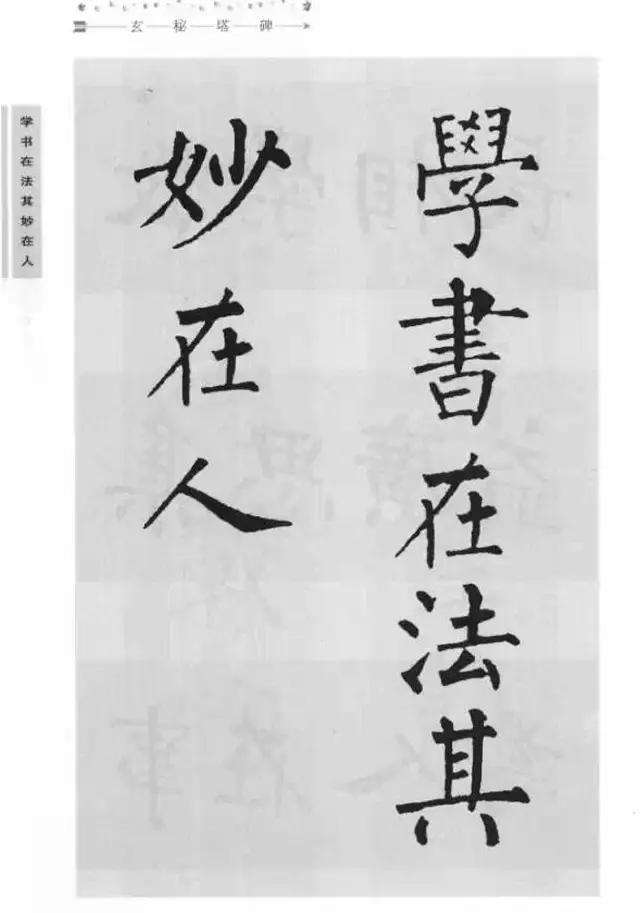 玄秘塔碑
学书在法其妙在人
學書在法其
妙在人